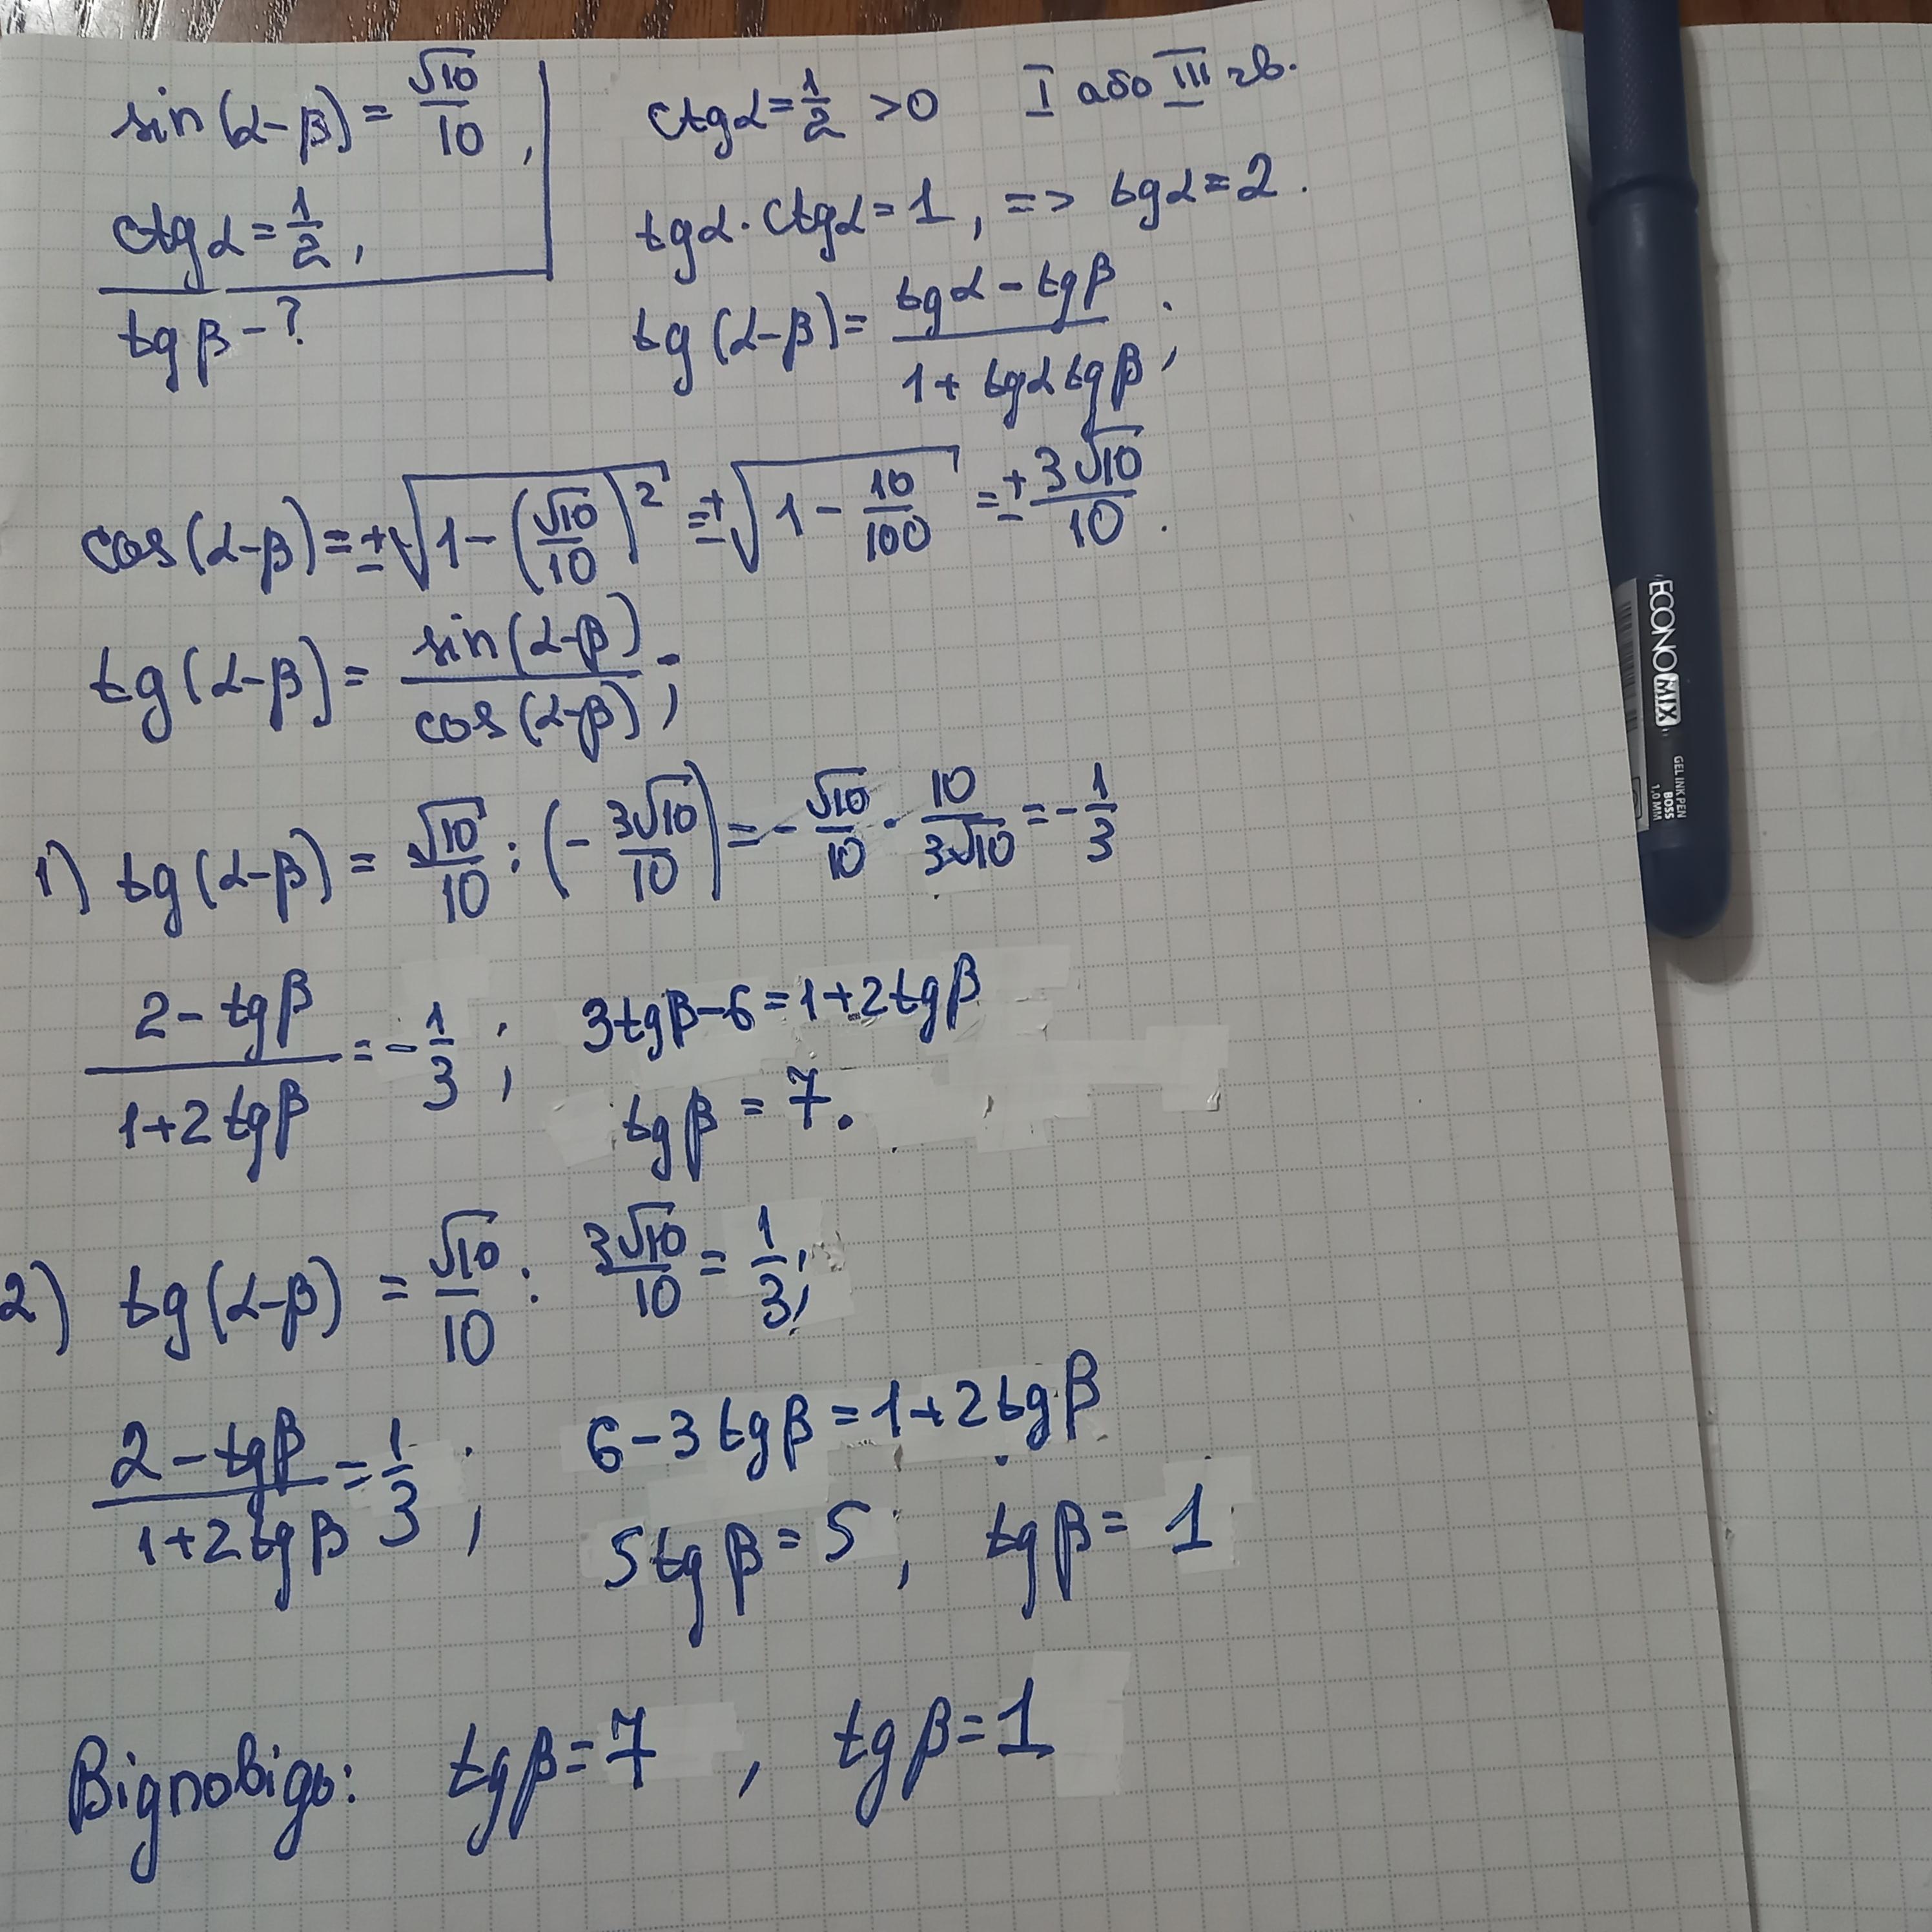 sin(α-β) = √10/10 ,
ctgα = 1/2 ,
tgβ - ?
ctgα = 1/2 > 0 I або III чв.
tgα · ctgα = 1, => tgα = 2 .
tg(α-β) = (tgα - tgβ)/(1 + tgα tgβ) ;
cos(α-β) = ±√(1 - (√10/10)²) = ±√(1 - 10/100) = ± 3√10/10 .
tg(α-β) = sin(α-β)/cos(α-β) ;
1) tg(α-β) = √10/10 : (- 3√10/10) = - √10/10 · 10/3√10 = - 1/3
(2 - tgβ)/(1 + 2tgβ) = - 1/3 ; 3tgβ - 6 = 1 + 2tgβ
tgβ = 7.
2) tg(α-β) = √10/10 : 3√10/10 = 1/3 ;
(2 - tgβ)/(1 + 2tgβ) = 1/3 ; 6 - 3tgβ = 1 + 2tgβ
5tgβ = 5 , tgβ = 1
Відповідь: tgβ = 7 , tgβ = 1
ECONOMIX
GEL INK PEN
BOSS
1,0 MM